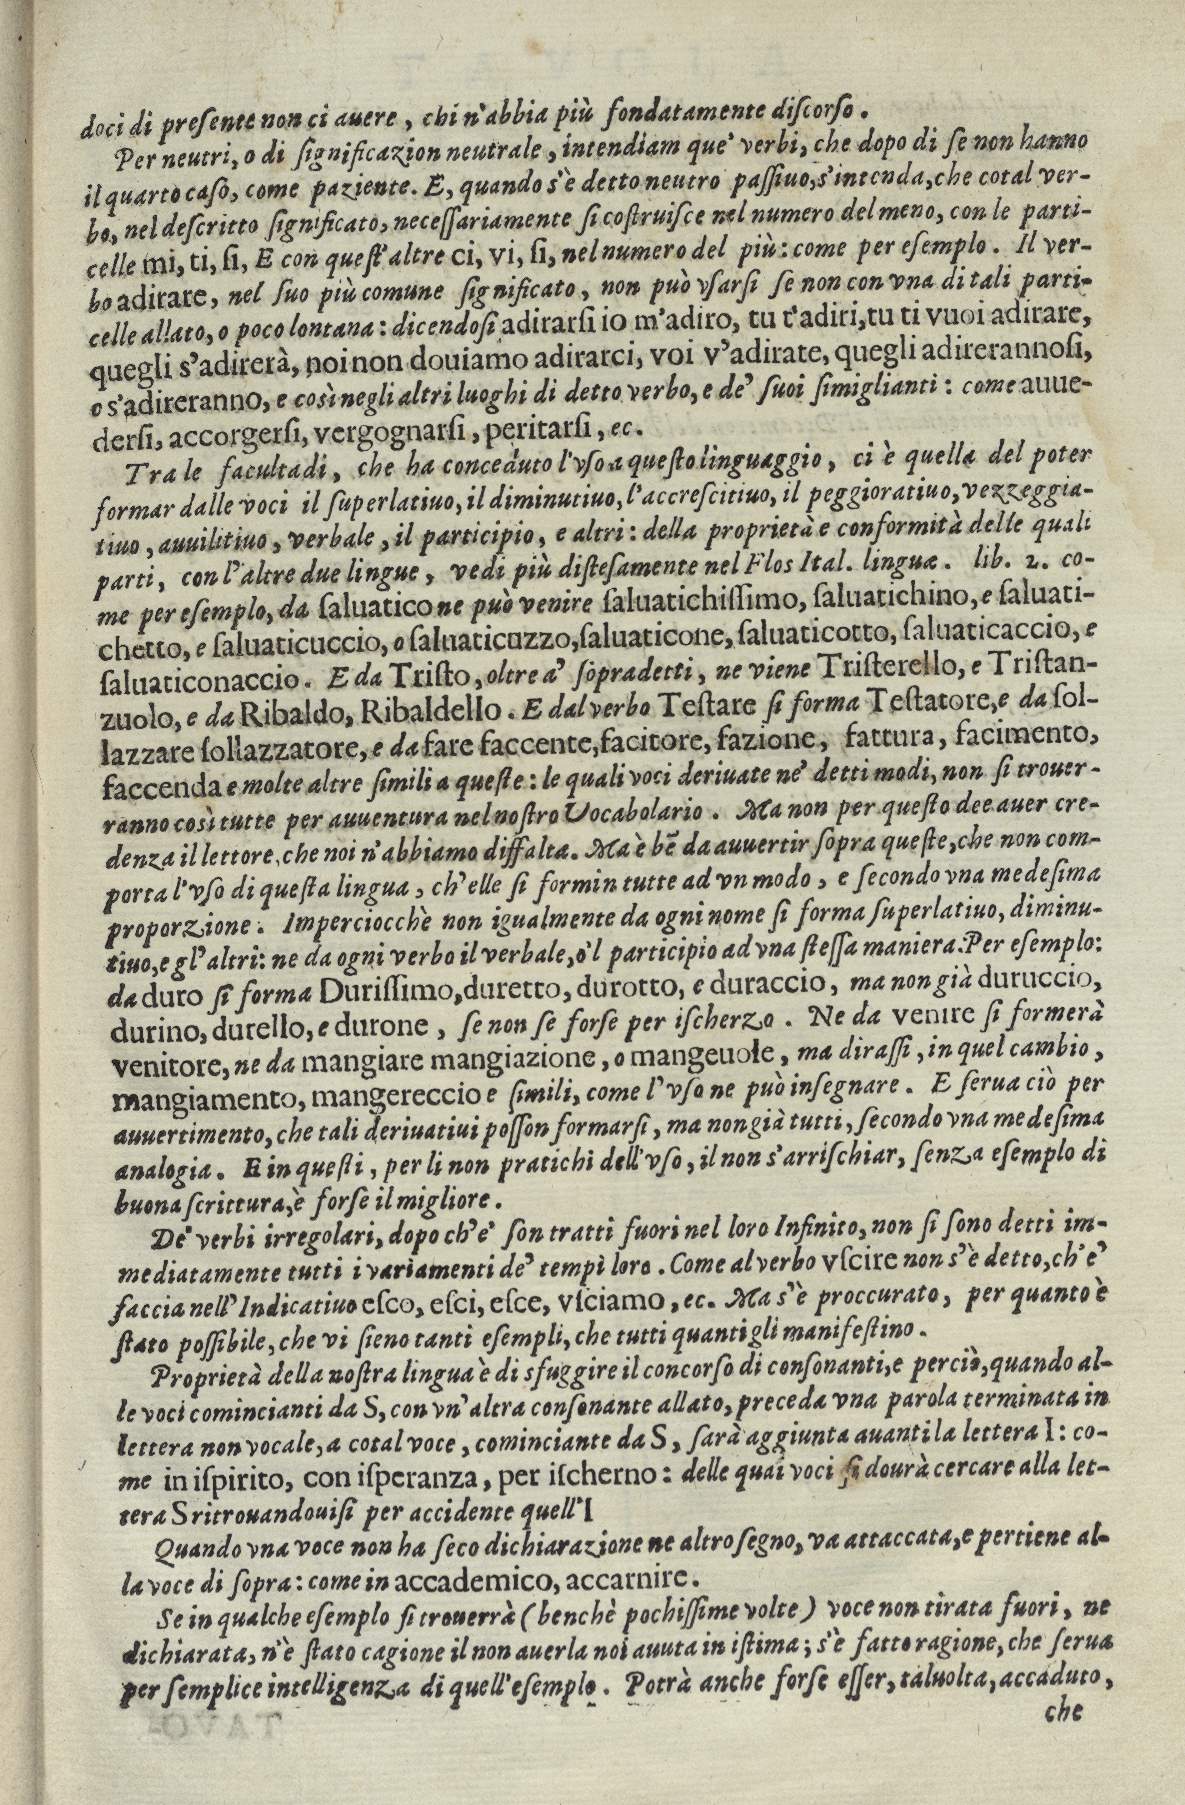 doci di preſente non ci auere, chi n'abbia più fondatamente diſcorſo.
Per neutri, o di ſignificazion neutrale, intendiam que' verbi, che dopo di ſe non hanno
il quarto caſo, come paziente. E, quando s'è detto neutro paſſiuo, s'intenda, che cotal ver-
bo, nel deſcritto ſignificato, neceſſariamente ſi coſtruiſce nel numero del meno, con le parti-
celle mi, ti, ſi, E con queſt'altre ci, vi, ſi, nel numero del più: come per eſemplo. Il ver-
bo adirare, nel ſuo più comune ſignificato, non può vſarſi ſe non con vna di tali parti-
celle allato, o poco lontana: dicendoſi adirarſi io m'adiro, tu t'adiri, tu ti vuoi adirare,
quegli s'adirerà, noi non douiamo adirarci, voi v'adirate, quegli adirerannoſi,
o s'adireranno, e così negli altri luoghi di detto verbo, e de' ſuoi ſimiglianti: come auue-
derſi, accorgerſi, vergognarſi, peritarſi, ec.
Tra le facultadi, che ha conceduto l'vſo a queſto linguaggio, ci è quella del poter
formar dalle voci il ſuperlatiuo, il diminutiuo, l'accreſcitiuo, il peggioratiuo, vezzeggia-
tiuo, auuilitiuo, verbale, il participio, e altri: della proprietà e conformità delle quali
parti, con l'altre due lingue, vedi più diſteſamente nel Flos Ital. linguæ. lib. 2. co-
me per eſemplo, da ſaluatico ne può venire ſaluatichiſſimo, ſaluatichino, e ſaluati-
chetto, e ſaluaticuccio, o ſaluaticuzzo, ſaluaticone, ſaluaticotto, ſaluaticaccio, e
ſaluaticonaccio. E da Triſto, oltre a' ſopradetti, ne viene Triſterello, e Triſtan-
zuolo, e da Ribaldo, Ribaldello. E dal verbo Teſtare ſi forma Teſtatore, e da ſol-
lazzare ſollazzatore, e da fare faccente, facitore, fazione, fattura, facimento,
faccenda e molte altre ſimili a queſte: le quali voci deriuate ne' detti modi, non ſi trouer-
ranno così tutte per auuentura nel noſtro Vocabolario. Ma non per queſto dee auer cre-
denza il lettore, che noi n'abbiamo diffalta. Ma è bẽ da auuertir ſopra queſte, che non com-
porta l'vſo di queſta lingua, ch'elle ſi formin tutte ad vn modo, e ſecondo vna medeſima
proporzione. Imperciocchè non igualmente da ogni nome ſi forma ſuperlatiuo, diminu-
tiuo, e gl'altri: ne da ogni verbo il verbale, o'l participio ad vna ſteſſa maniera. Per eſemplo:
da duro ſi forma Duriſſimo, duretto, durotto, e duraccio, ma non già duruccio,
durino, durello, e durone, ſe non ſe forſe per iſcherzo. Ne da venire ſi formerà
venitore, ne da mangiare mangiazione, o mangeuole, ma diraſſi, in quel cambio,
mangiamento, mangereccio e ſimili, come l'vſo ne può inſegnare. E ſerua ciò per
auuertimento, che tali deriuatiui poſſon formarſi, ma non già tutti, ſecondo vna medeſima
analogia. E in queſti, per li non pratichi dell'vſo, il non s'arriſchiar, ſenza eſemplo di
buona ſcrittura, è forſe il migliore.
De' verbi irregolari, dopo ch'e' ſon tratti fuori nel loro Infinito, non ſi ſono detti im-
mediatamente tutti i variamenti de' tempi loro. Come al verbo vſcire non s'è detto, ch'e'
faccia nell'Indicatiuo eſco, eſci, eſce, vſciamo, ec. Ma s'è proccurato, per quanto è
ſtato poſſibile, che vi ſieno tanti eſempli, che tutti quanti gli manifeſtino.
Proprietà della noſtra lingua è di sfuggire il concorſo di conſonanti, e perciò, quando al-
le voci comincianti da S, con vn'altra conſonante allato, preceda vna parola terminata in
lettera non vocale, a cotal voce, cominciante da S, ſarà aggiunta auanti la lettera I: co-
me in iſpirito, con iſperanza, per iſcherno: delle quai voci ſi dourà cercare alla let-
tera S ritrouandouiſi per accidente quell'I
Quando vna voce non ha ſeco dichiarazione ne altro ſegno, va attaccata, e pertiene al-
la voce di ſopra: come in accademico, accarnire.
Se in qualche eſemplo ſi trouerrà (benchè pochiſſime volte) voce non tirata fuori, ne
dichiarata, n'è ſtato cagione il non auerla noi auuta in iſtima; s'è fatto ragione, che ſerua
per ſemplice intelligenza di quell'eſemplo. Potrà anche forſe eſſer, taluolta, accaduto,
che